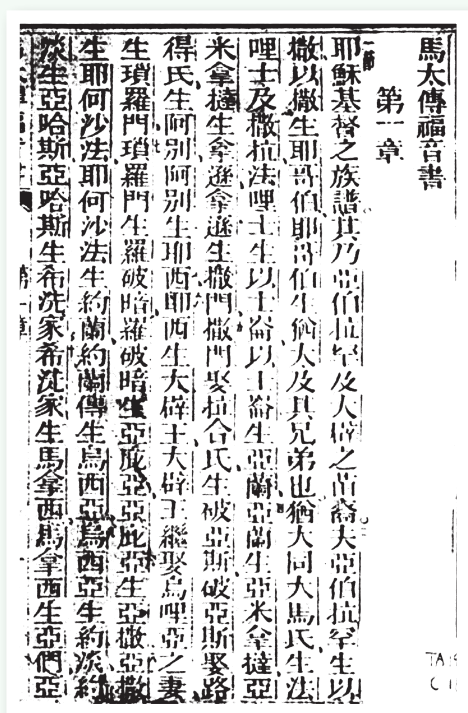 馬太傳福音書
第一章
一節
耶穌基督之族譜其乃亞伯拉罕及大辟之苗裔夫亞伯拉罕生以
撒以撒生耶哥伯耶哥伯生猶大及其兄弟也猶大同大馬氏生法
哩士及撒拉法哩士生以士崙以士崙生亞蘭亞蘭生亞米拿撻亞
米拿撻生拿遜拿遜生撒門撒門娶拉合氏生破亞斯破亞斯娶路
得氏生阿別阿別生耶西耶西生大辟王大辟王繼娶烏哩亞之妻
生瑣羅門瑣羅門生羅破暗羅破暗生亞庇亞亞庇亞生亞撒亞撒
生耶何沙法耶何沙法生約蘭約蘭傳生烏西亞烏西亞生約淡約
淡生亞哈斯亞哈斯生希洗家希洗家生馬拿西馬拿西生亞們亞
第一章